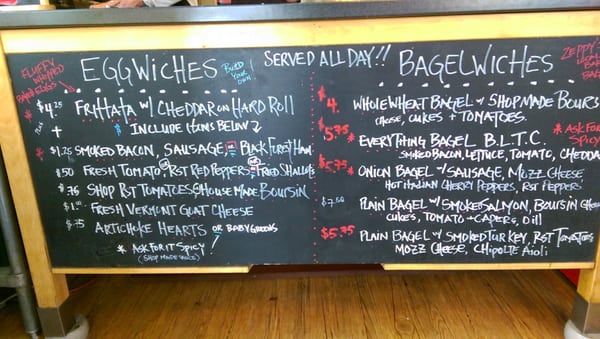 SERVED ALL DAY!!
EGGWiCHES
BUiLD YOUR OWN
FLUFFY WHIPPED BAKED EGGS
$4.25 FRiTTATA w/ CHEDDAR ON HARD ROLL
+ $ INCLUDE ITEMS BELOW
* $1.25 SMOKED BACON, SAUSAGE, OR BLACK FOREST HAM
.50 FRESH TOMATO, OR RST RED PEPPERS, OR FRIED SHALLOTS
.75 SHOP RST TOMATOES, HOUSE MADE BOURSIN
$1.00 FRESH VERMONT GOAT CHEESE
$.75 ARTICHOKE HEARTS OR BABY GREENS
* ASK FOR IT SPICY!
(SHOP MADE SAUCE)
BAGELWICHES
ZEPPY'S
$4. WHOLE WHEAT BAGEL w/ SHOP MADE BOURS
CHEESE, CUKES + TOMATOES.
$5.75 * EVERYTHING BAGEL B.L.T.C.
* ASK FO
SPICY
SMOKED BACON, LETTUCE, TOMATO, CHEDDA
$5.75 ONION BAGEL w/ SAUSAGE, MOZZ CHEESE
HOT ITALIAN CHERRY PEPPERS, RST PEPPERS
$7.50 PLAIN BAGEL w/ SMOKE SALMON, BOURSIN CHEE
CUKES, TOMATO + CAPERS, DILL
$5.75 PLAIN BAGEL w/ SMOKED TURKEY, RST TOMATOES
MOZZ CHEESE, CHIPOLTE AIOLI